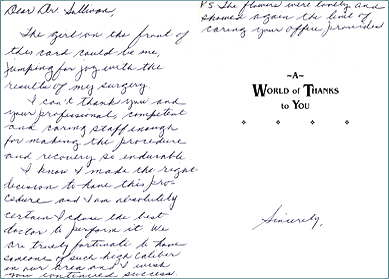 Dear Dr. Sullivan
The girl on the front of
this card could be me,
jumping for joy with the
results of my surgery.
I can't thank you and
your professional, competent
and caring staff enough
for making the procedure
and recovery so endurable
I know I made the right
decision to have this pro-
cedure and I am absolutely
certain I chose the best
doctor to perform it. We
are truly fortunate to have
someone of such high caliber
in our area and I wish
you continued success.
P.S. The flowers were lovely and
showed again the level of
caring your office provided.
~A~
WORLD OF THANKS
TO YOU
Sincerely,